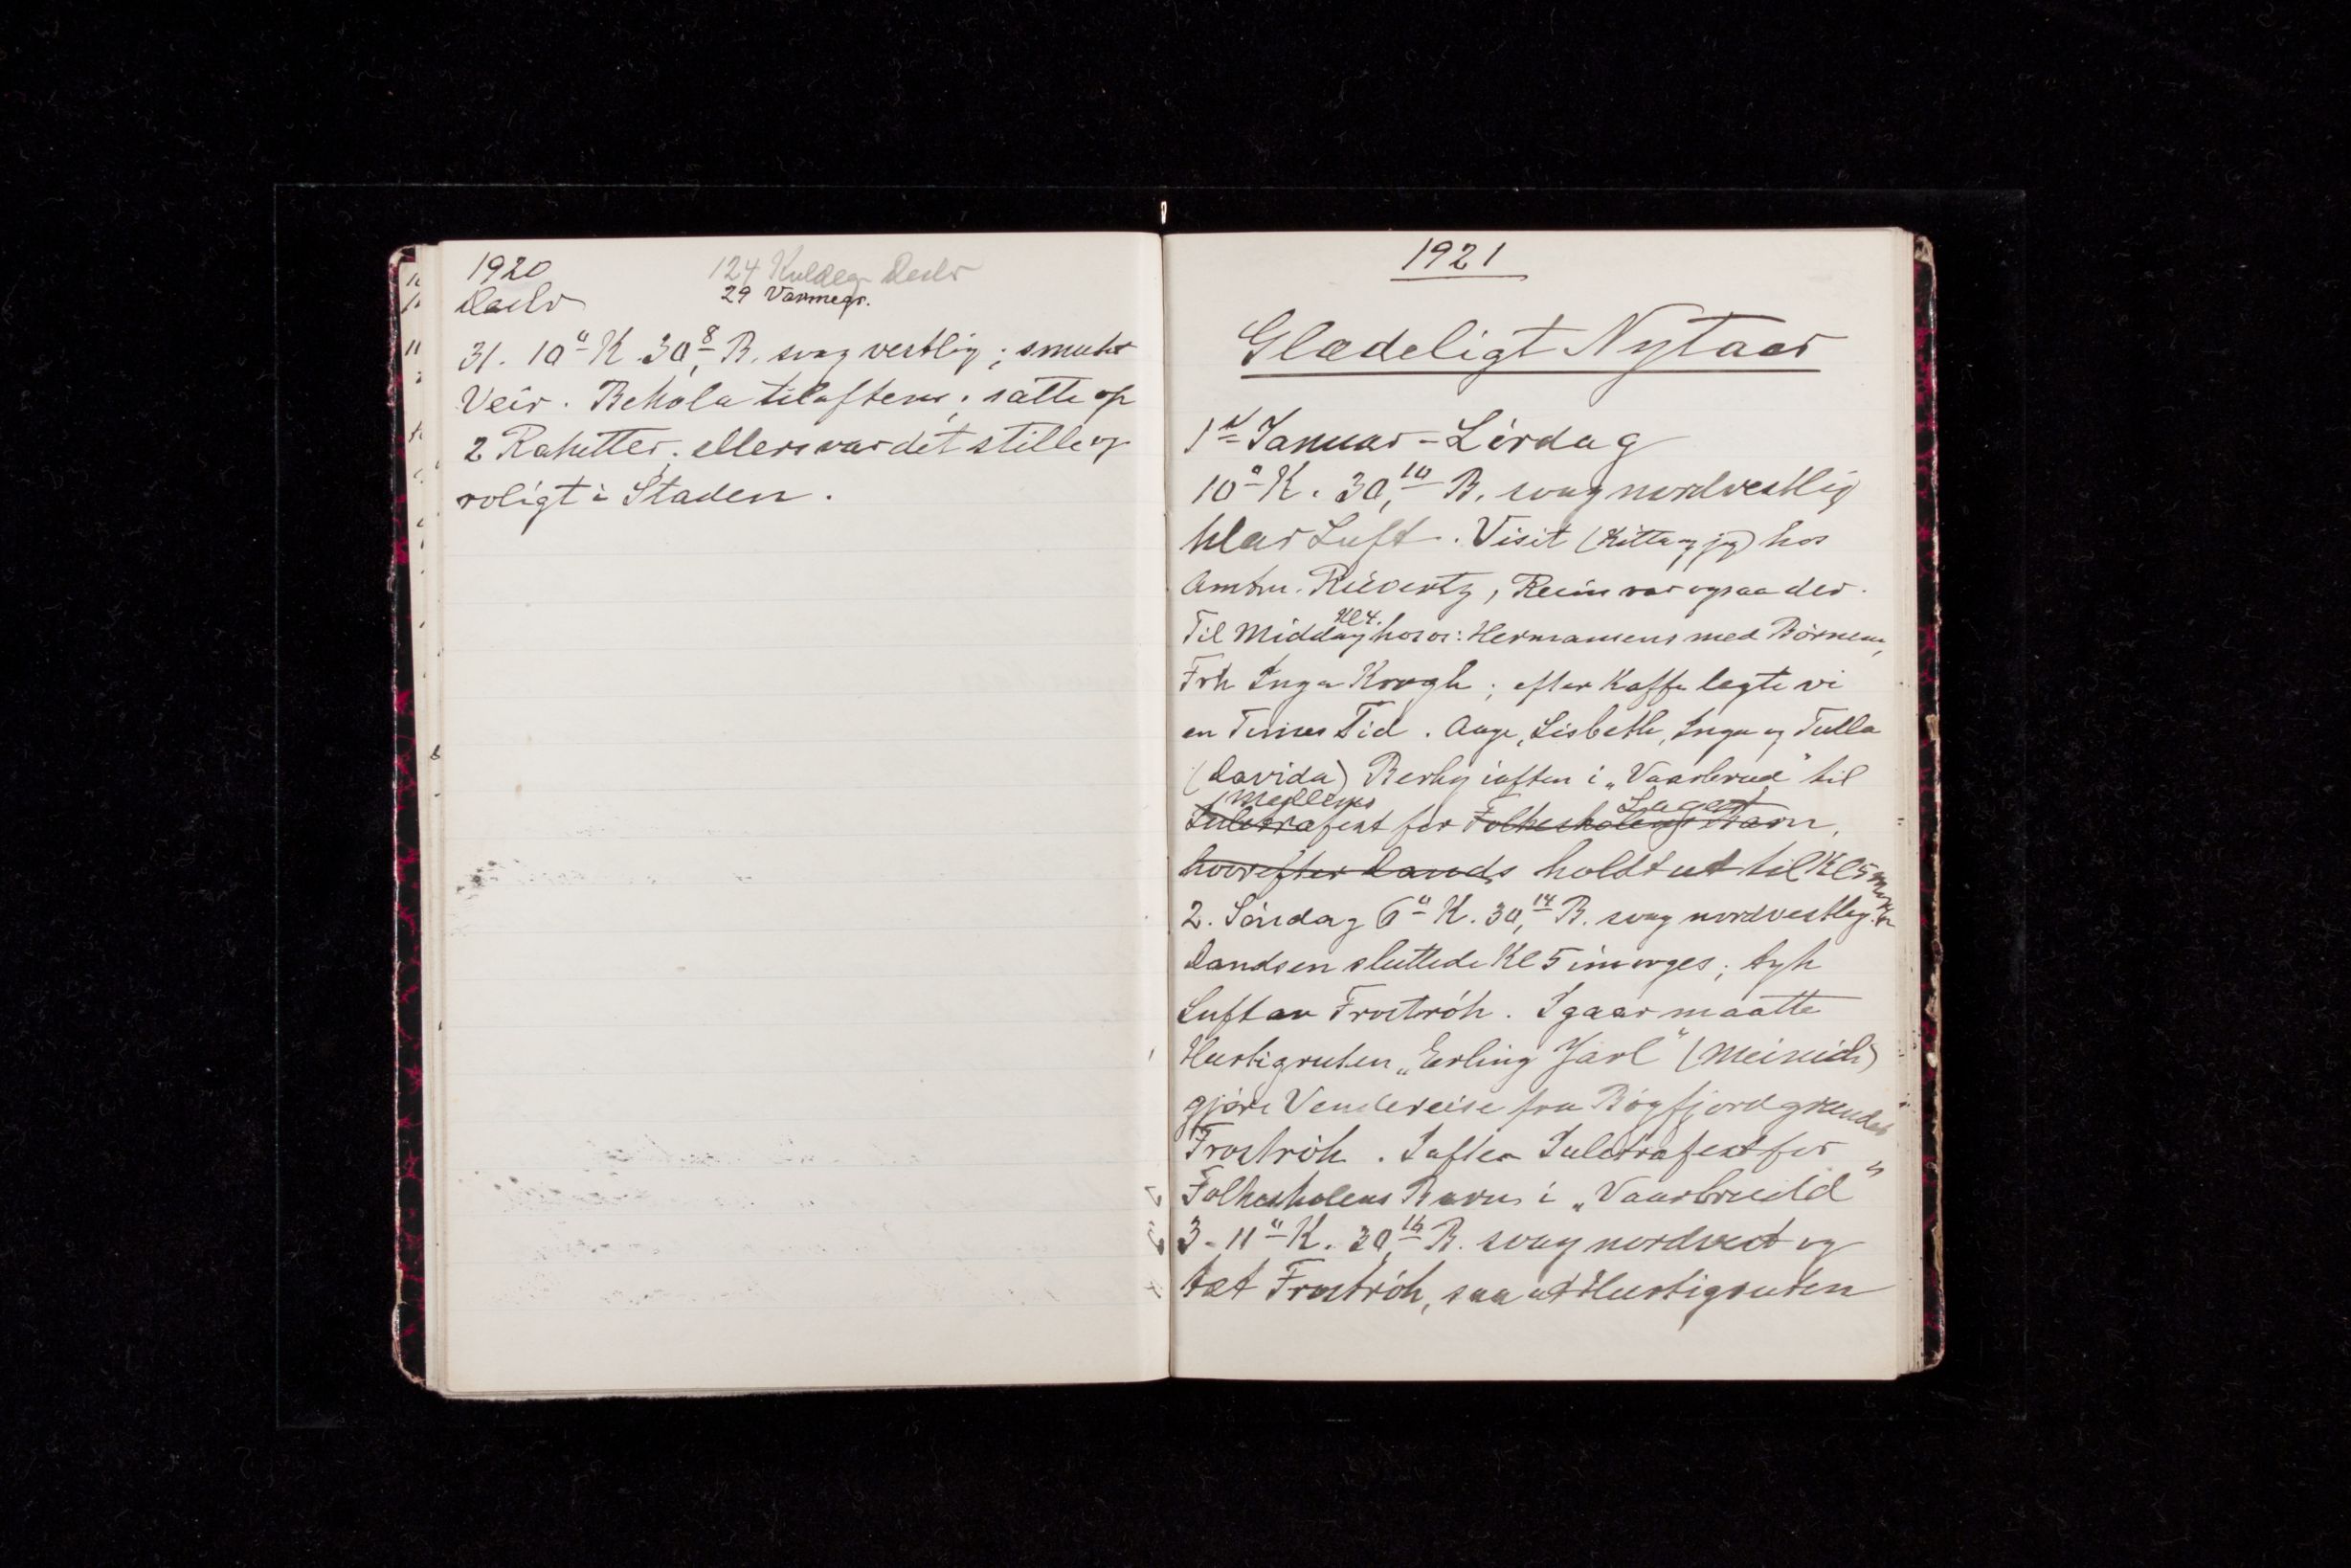 1920
Decbr
124 Kuldegr Decbr
29 Varmegr.
31. 10° K. 30,8 B. svag vestlig; smukt
Veir. Rehola tilaftens; satte op
2 Raketter; ellers var det stille og
roligt i Staden.
1921
Glædeligt Nytaar
1st Januar - Lørdag
10° K. 30,10 B. svag nordvestlig
klar Luft. Visit (Kitta og jeg) hos
Amtm. Rievertz, Reim var ogsaa der.
Til Middag Kl 4. hos os: Hermansens med Børnene,
Frk Inga Krogh; efter Kaffe legte vi
en Times Tid. Aage, Lisbeth, Inga og Tulla
(Davida) Berby iaften i „Vaarbrud" til
Juletræfest Mellems for Folkeskolens Barn Laget,
hvorefter Dands holdt ut til Kl 5 morgen
2. Søndag 6° K. 30,14 B. svag nordvestlig.
Dandsen sluttede Kl 5 imorges; tyk
Luft av Froströk. Igaar maatte
Hurtigruten „Erling Jarl" (Meinich)
gjøre Vendereise fra Bøgfjord grundet
Froströk. Iaften Juletræfest for
Folkeskolens Barn i „Vaarbrudd"
3. 11° K. 30,16 B. svag nordvest og
tæt Froströk, saa at Hurtigruten